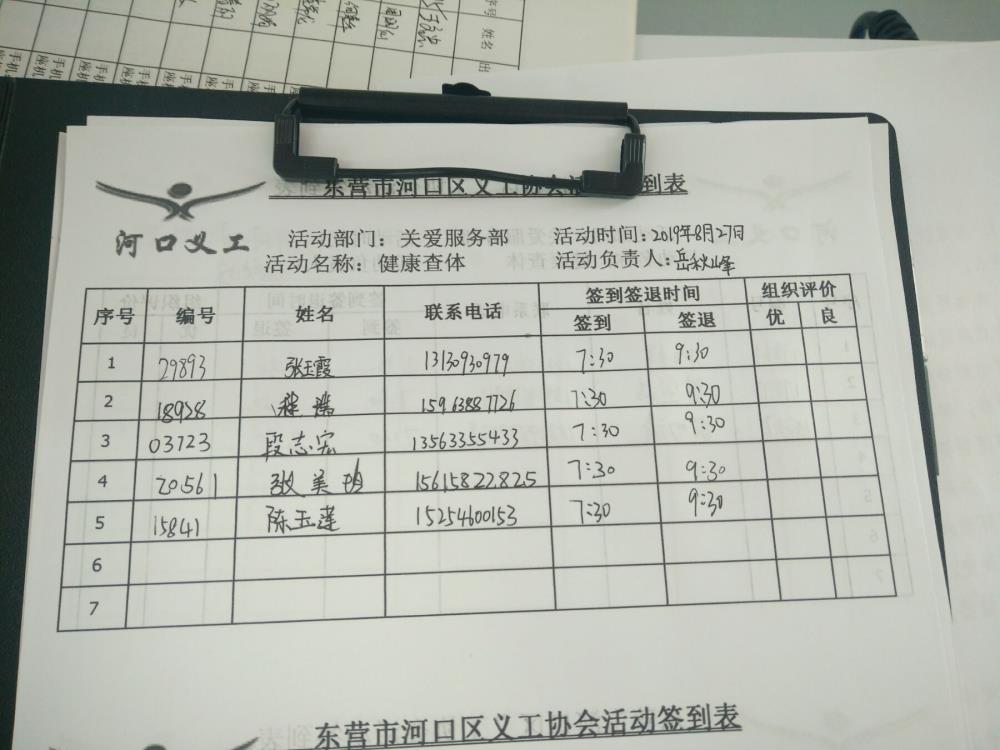 序号 姓名 出
东营市河口区义工协会活动签到表
河口义工
活动部门：关爱服务部 活动时间：2019年8月27日
活动名称：健康查体 活动负责人：岳秋峰
序号 编号 姓名 联系电话 签到签退时间 组织评价
签到 签退 优 良
1 29893 张玉霞 13130930979 7:30 9:30
2 18928 程瑞 15963887726 7:30 9:30
3 03723 段志宏 13563355433 7:30 9:30
4 20561 张美玥 15615822825 7:30 9:30
5 15841 陈玉莲 15254600153 7:30 9:30
6
7
东营市河口区义工协会活动签到表